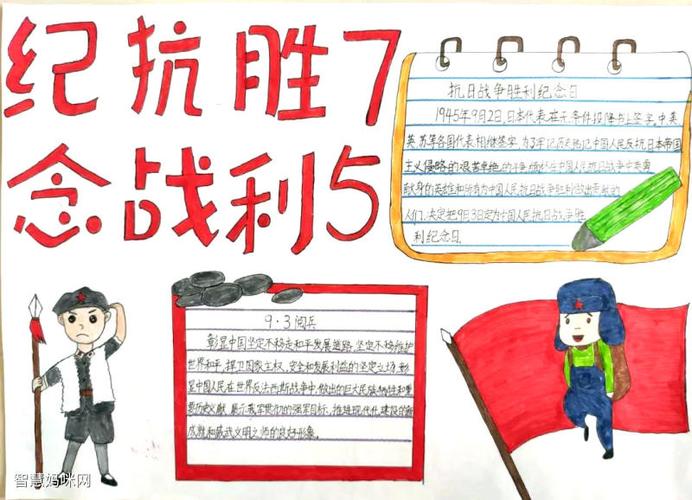 纪抗胜7
念战利5
抗日战争胜利纪念日
1945年9月2日,日本代表在无条件投降书上签字,中、美
英、苏等各国代表相继签字,为了牢记历史,铭记中国人民反抗日本帝国
主义侵略的艰苦卓绝的斗争,缅怀在中国人民抗日战争中英勇
献身的英雄和所有为中国人民抗日战争胜利做出贡献的
人们,决定把9月3日定为中国人民抗日战争胜
利纪念日.
9·3阅兵
彰显中国坚定不移走和平发展道路,坚定不移维护
世界和平,捍卫国家主权,安全和发展利益的坚定立场,彰
显中国人民在世界反法西斯战争中,做出的巨大民族牺牲和重
要历史贡献,展示我军贯彻的强军目标,推进现代化建设的新
成就和威武文明之师的良好形象.
智慧妈咪网